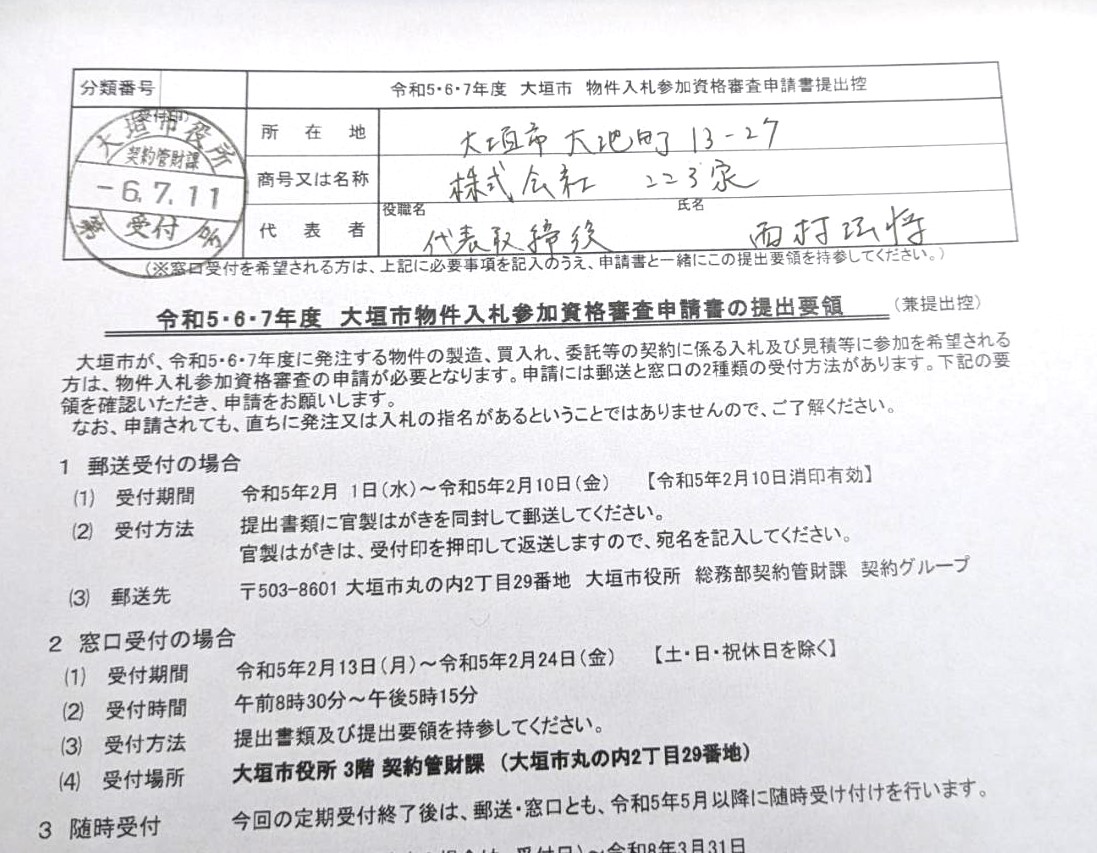 分類番号
令和5・6・7年度 大垣市 物件入札参加資格審査申請書提出控
(受付印)
大垣市役所
契約管財課
-6.7.11
受付
所在地
大垣市大池町13-27
商号又は名称
株式会社 223家
代表者
役職名
代表取締役
氏名
西村
(※窓口受付を希望される方は、上記に必要事項を記入のうえ、申請書と一緒にこの提出要領を持参してください。)
令和5・6・7年度 大垣市物件入札参加資格審査申請書の提出要領 (兼提出控)
大垣市が、令和5・6・7年度に発注する物件の製造、買入れ、委託等の契約に係る入札及び見積等に参加を希望される
方は、物件入札参加資格審査の申請が必要となります。申請には郵送と窓口の2種類の受付方法があります。下記の要
領を確認いただき、申請をお願いします。
なお、申請されても、直ちに発注又は入札の指名があるということではありませんので、ご了解ください。
1 郵送受付の場合
(1) 受付期間 令和5年2月 1日(水)～令和5年2月10日(金) 【令和5年2月10日消印有効】
(2) 受付方法 提出書類に官製はがきを同封して郵送してください。
官製はがきは、受付印を押印して返送しますので、宛名を記入してください。
(3) 郵送先 〒503-8601 大垣市丸の内2丁目29番地 大垣市役所 総務部契約管財課 契約グループ
2 窓口受付の場合
(1) 受付期間 令和5年2月13日(月)～令和5年2月24日(金) 【土・日・祝休日を除く】
(2) 受付時間 午前8時30分～午後5時15分
(3) 受付方法 提出書類及び提出要領を持参してください。
(4) 受付場所 大垣市役所 3階 契約管財課 (大垣市丸の内2丁目29番地)
3 随時受付 今回の定期受付終了後は、郵送・窓口とも、令和5年5月以降に随時受け付けを行います。
受付日)～令和8年3月31日